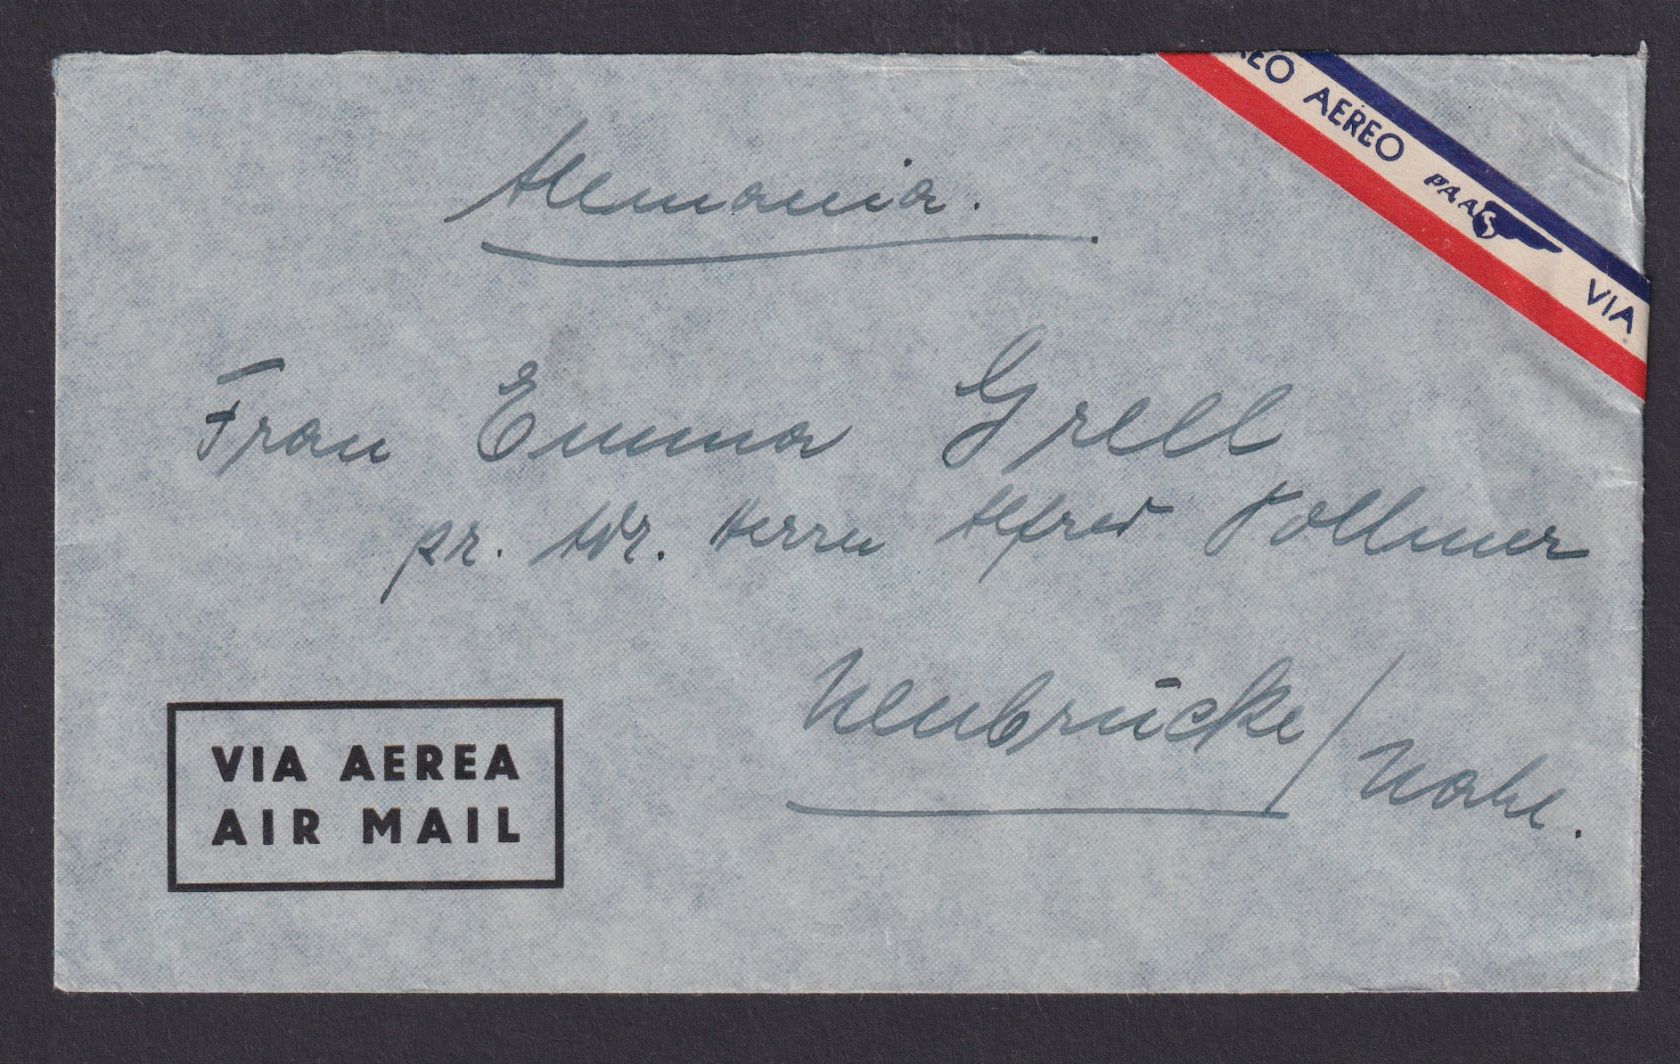 Alemania.
EO AEREO PAA VIA
Frau Emma Grell
pr. Adr. Herrn Alfred Vollmer
Neubrücke/Nahe.
VIA AEREA
AIR MAIL